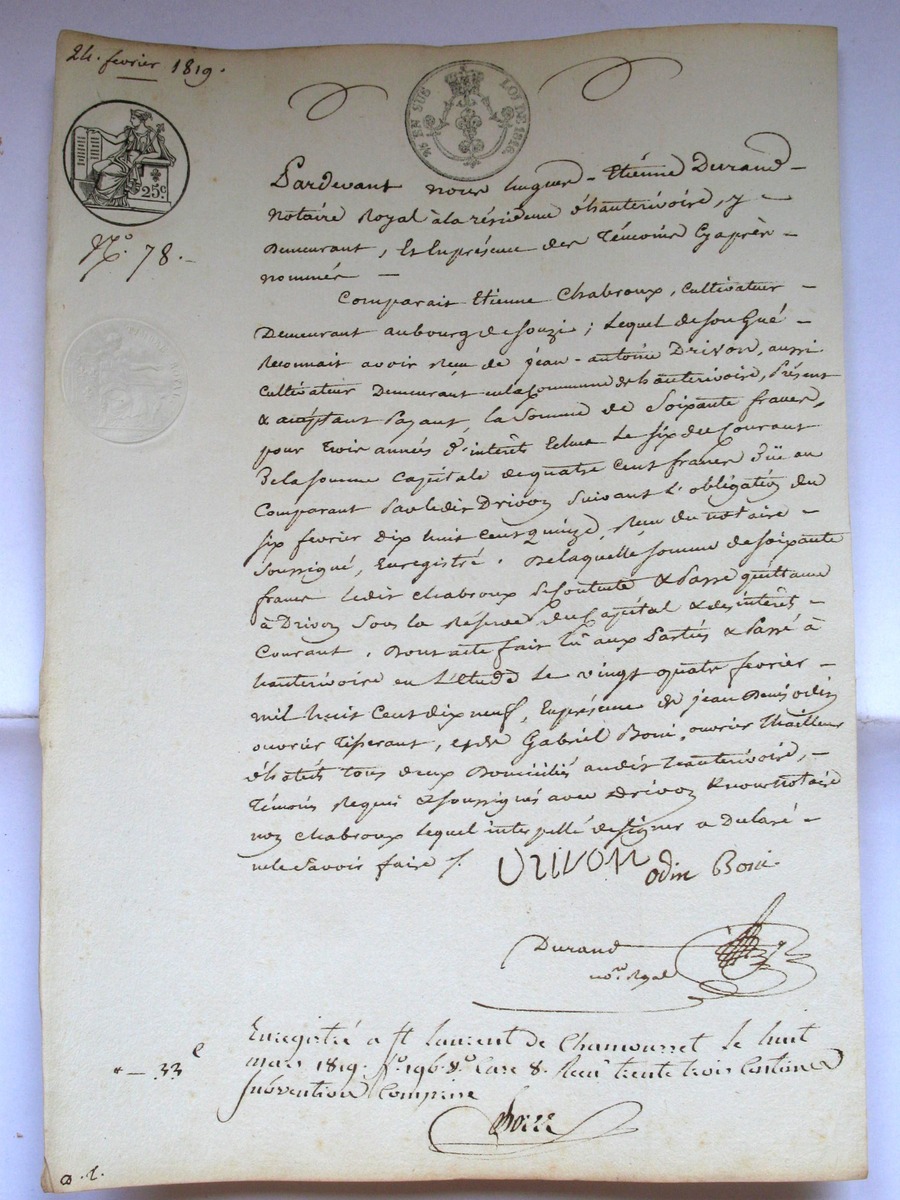 24. fevrier 1819.
25 EN SUS LOI DE 1816.
25c.
No. 78.
Pardevant nous hugues-Etienne Durand
notaire Royal à la résidence d'hauterivoire, y
Demeurant, Et En présence des Témoins Cyaprès
nommés
Comparait Etienne Chabroux, Cultivateur
Demeurant au bourg de souzi; Lequel de son Gré
Reconnait avoir Reçu de jean-antoine Drivon, aussi
Cultivateur Demeurant en la Commune de hauterivoire, Présent
& acceptant Payant, la Somme de Soixante francs,
pour Trois années d'interêt Echus Le Six du Courant
De la somme Capitale de quatre Cent francs Düe au
Comparant Par ledit Drivon Suivant L'obligation du
Six fevrier dix huit Cent quinze, Reçu du notaire
Soussigné, Enregistré. De laquelle somme de soixante
francs ledit Chabroux Se Contente & Passe quittance
à Drivon Sous la Réserve du Capital & des interêts
Courant. Dont acte fait lu aux Parties & Passé à
hauterivoire en L'étude Le vingt quatre fevrier
mil huit Cent dix neuf, En présence de jean Denis odin
ouvrier Tisserant, et de Gabriel Boni, ouvrier Thailleur
d'habits tous deux Domiciliés audit hauterivoire,
Témoins Requis & soussignés avec Drivon & nous notaire
non Chabroux lequel interpellé de signer a Déclaré
ne le Savoir faire /.
DRIVON odin Boni
Durand
nore Royal
Enregistré a St Laurent de Chamousset le huit
mars 1819. fo. 196. Vo. Case 8. Reçu trente trois Centimes
Subvention Comprise
" — 33 c